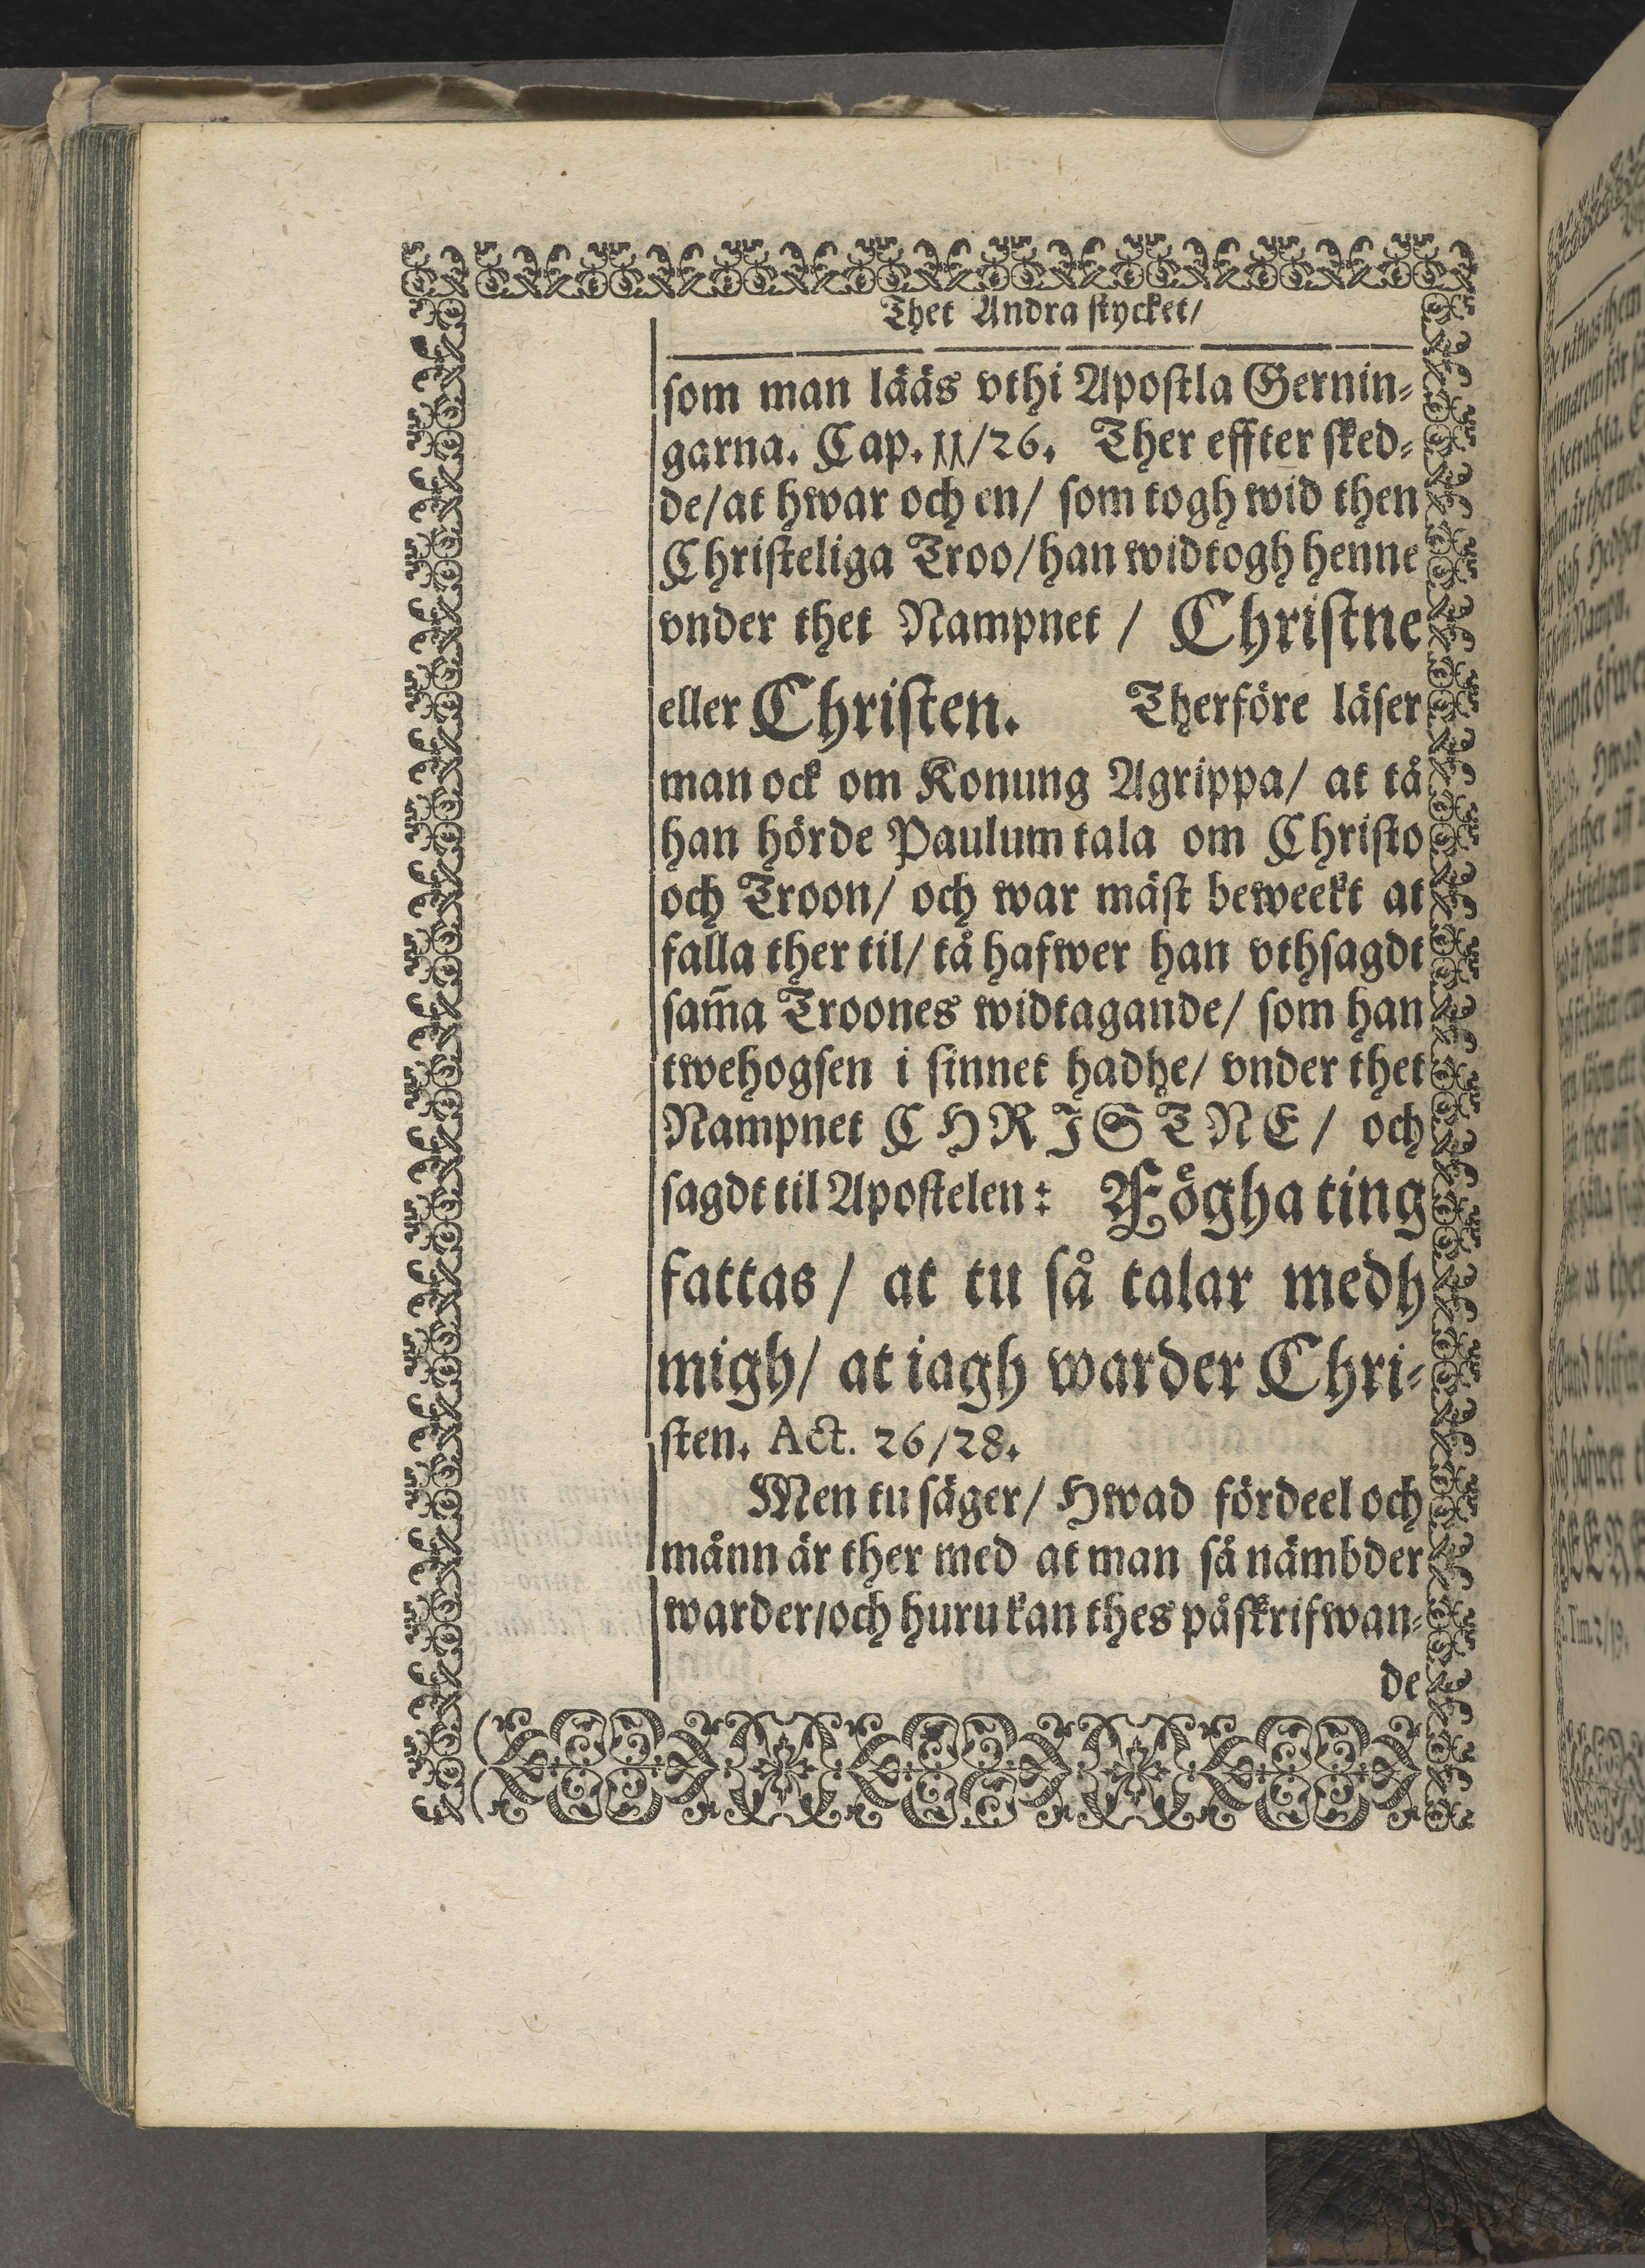 Thet Andra stycket/
som man lääs vthi Apostla Gernin-
garna. Cap. 11/26. Ther effter sked-
de/at hwar och en/ som togh wid then
Christeliga Troo/han widtogh henne
vnder thet Nampnet / Christne
eller Christen. Therföre läser
man ock om Konung Agrippa/ at tå
han hörde Paulum tala om Christo
och Troon/ och war mäst beweekt at
falla ther til/ tå hafwer han vthsagdt
sam̃a Troones widtagande/ som han
twehogsen i sinnet hadhe/ vnder thet
Nampnet CHRISTNE/ och
sagdt til Apostelen: Föghating
fattas / at tu så talar medh
migh/ at iagh warder Chri-
sten. Act. 26/28.
Men tu säger/ Hwad fördeel och
månn är ther med at man så nämbder
warder/och huru kan thes påskrifwan-
de